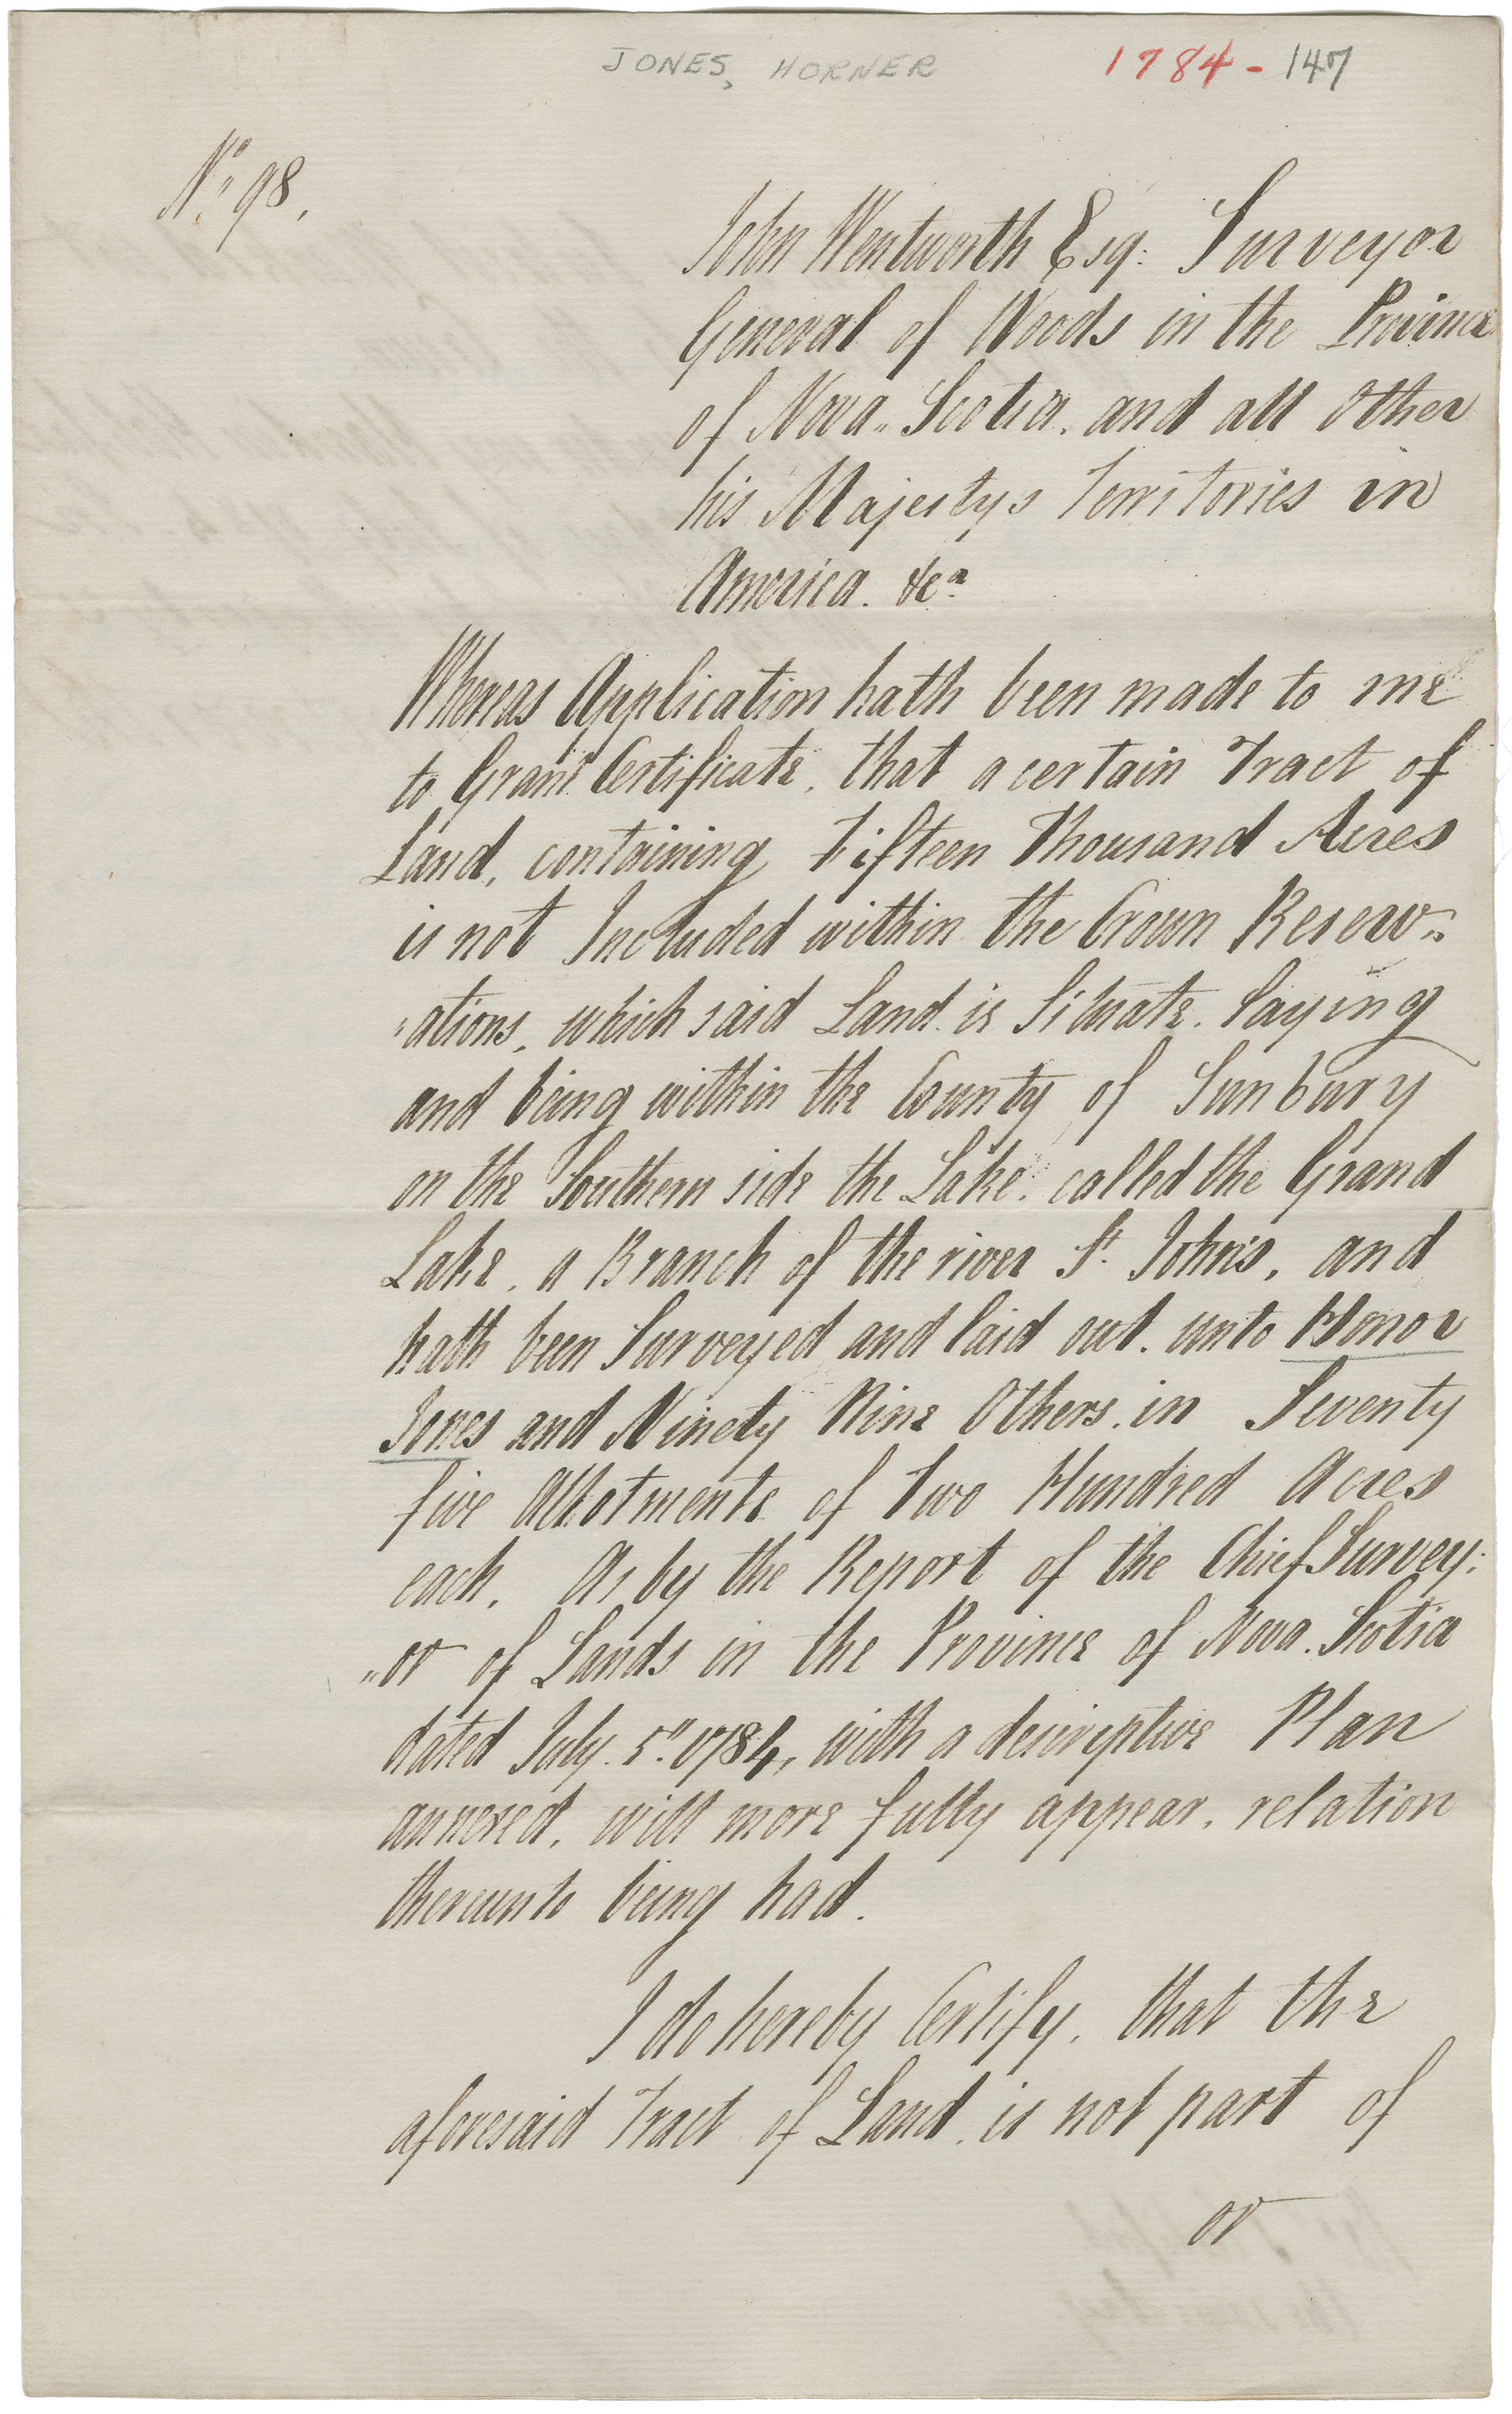 JONES, HORNER 1784 - 147
No. 98.
John Wentworth Esq: Surveyor
General of Woods in the Province
of Nova Scotia. and all Other
his Majestys Territories in
America. &ca
Whereas Application hath been made to me
to Grant Certificate, that a certain Tract of
Land, containing Fifteen Thousand Acres
is not Included within the Crown Reserv„
„ations, which said Land is Situate. Laying
and being within the County of Sunbury
on the Southern side the Lake. called the Grand
Lake, a Branch of the river St. John's, and
hath been Surveyed and laid out. unto Honor
Jones and Ninety Nine Others. in Seventy
five Allotments of Two Hundred Acres
each, As by the Report of the Chief Survey:
„or of Lands in the Province of Nova. Scotia
dated July. 5" 1784, with a descriptive Plan
annexed, will more fully appear, relation
thereunto being had.
I do hereby Certify, that the
aforesaid Tract of Land, is not part of
or